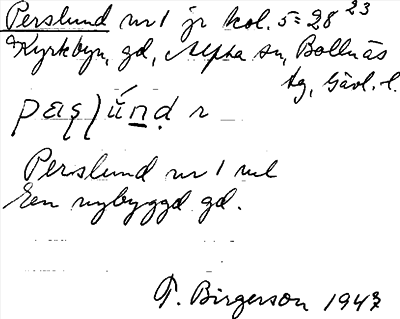 Perslund nr 1 jr kol. 5 = 28 23
Kyrkbyn, gd, Alfta sn, Bollnäs
tg, Gävl. l.
Perslund nr 1 ml
Een nybyggd gd.
T. Birgerson 1947